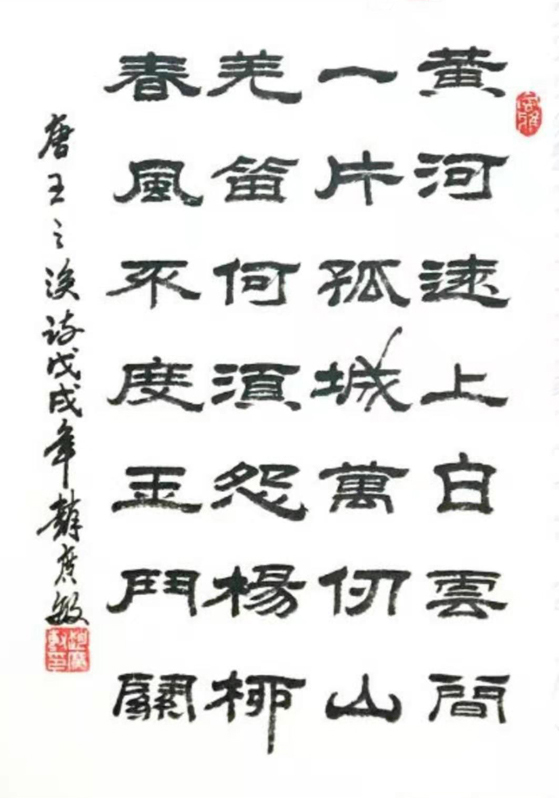 黄河遠上白雲間
一片孤城萬仞山
羌笛何須怨楊柳
春風不度玉門關
唐王之涣诗戊戌年敏